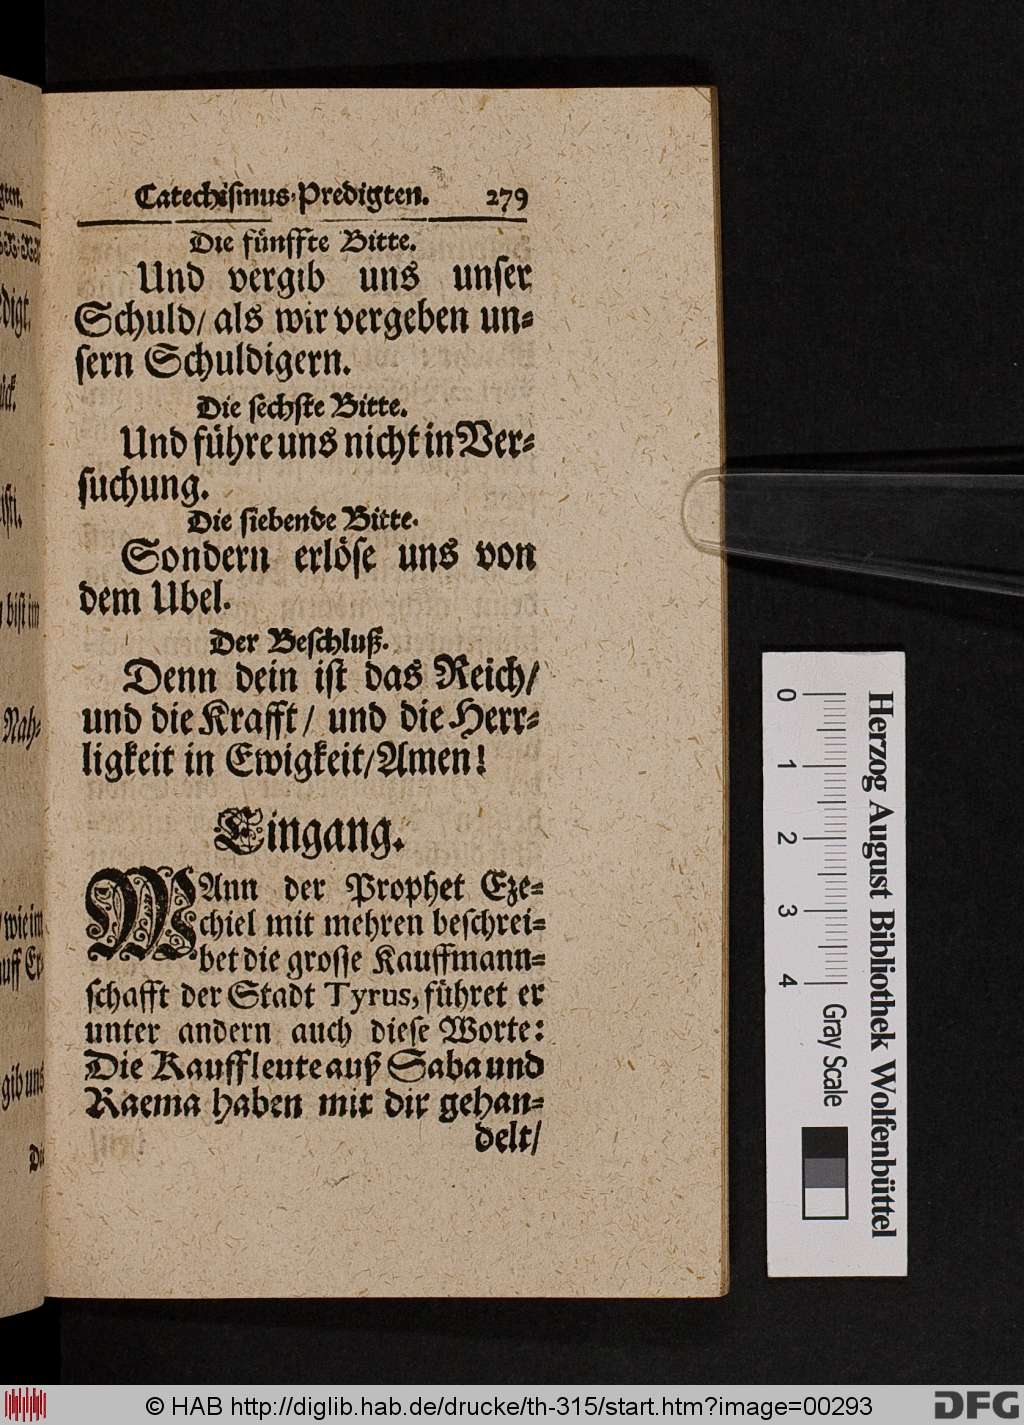 Catechiſmus-Predigten. 279
Die fünffte Bitte.
Und vergib uns unſer
Schuld/ als wir vergeben un-
ſern Schuldigern.
Die ſechſte Bitte.
Und führe uns nicht in Ver-
ſuchung.
Die ſiebende Bitte.
Sondern erlöſe uns von
dem Ubel.
Der Beſchluß.
Denn dein iſt das Reich/
und die Krafft/ und die Herr-
ligkeit in Ewigkeit/ Amen!
Eingang.
WAnn der Prophet Eze-
chiel mit mehren beſchrei-
bet die groſſe Kauffmann-
ſchafft der Stadt Tyrus, führet er
unter andern auch dieſe Worte:
Die Kauffleute auß Saba und
Raema haben mit dir gehan-
delt/
Herzog August Bibliothek Wolfenbüttel
0 1 2 3 4 Gray Scale
© HAB http://diglib.hab.de/drucke/th-315/start.htm?image=00293
DFG